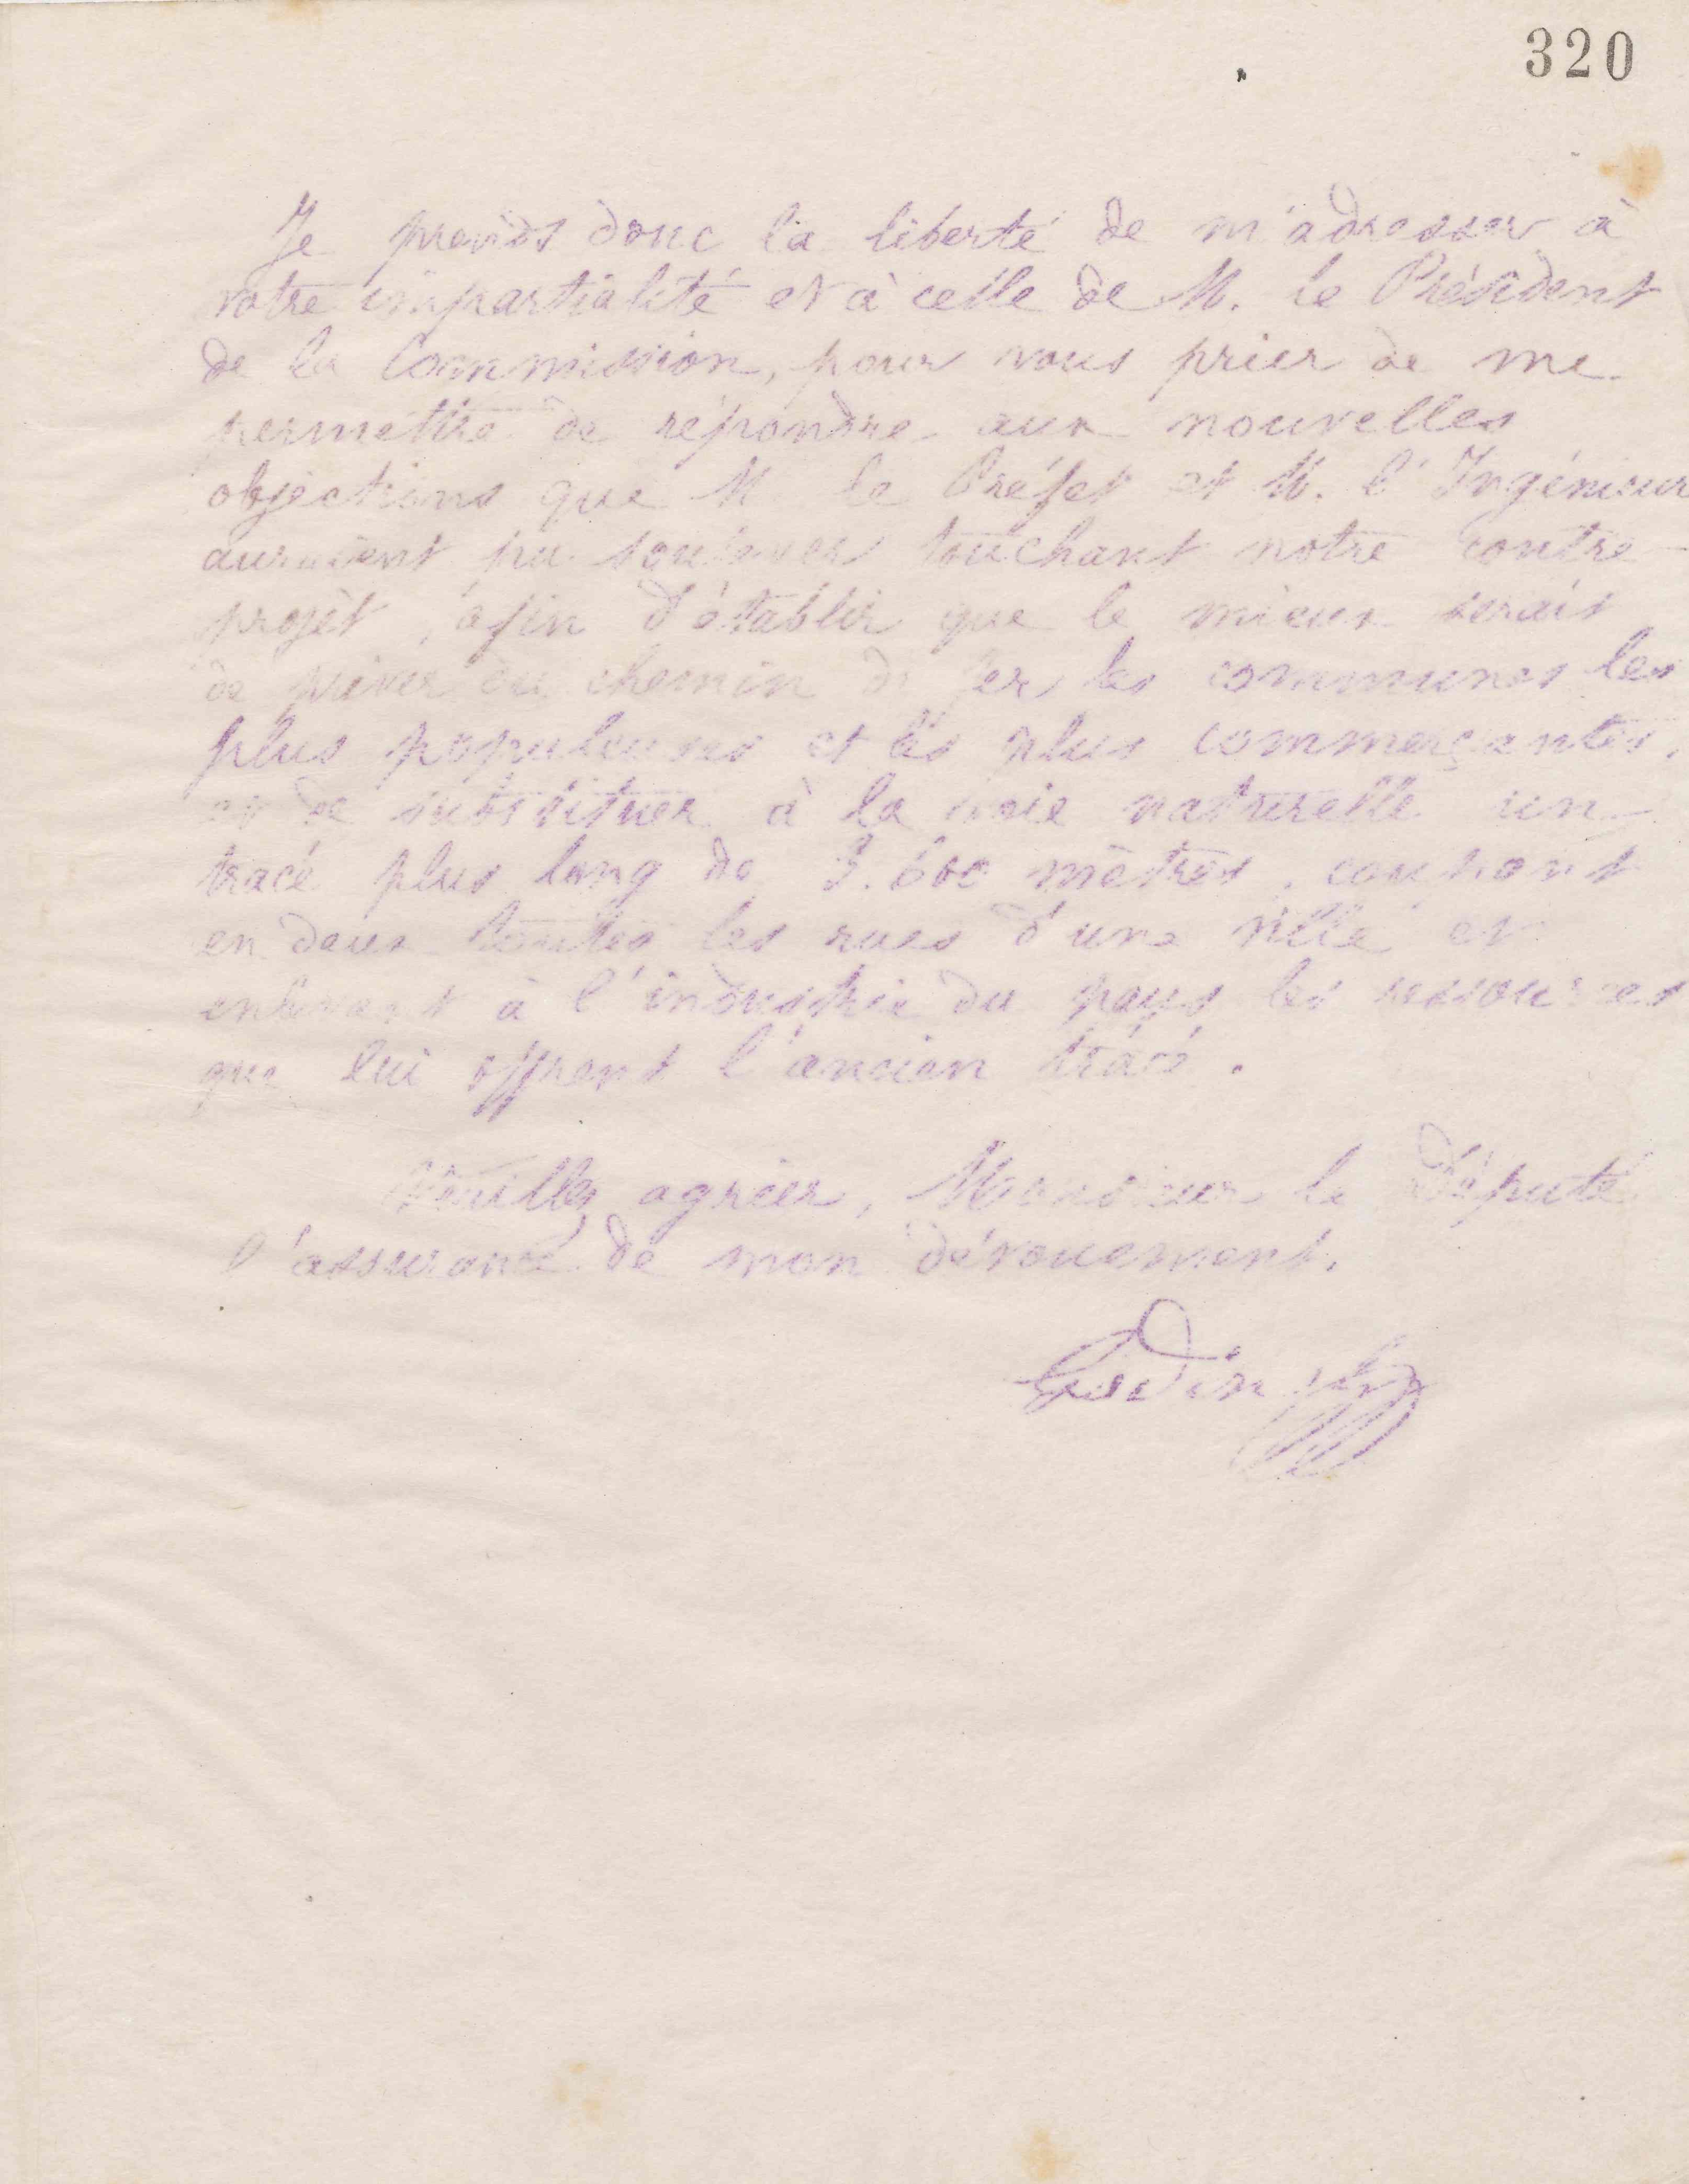 320
Je prends donc la liberté de m'adresser à
votre impartialité et à celle de M. le Président
de la Commission, pour vous prier de me
permettre de répondre aux nouvelles
objections que M le Préfet et M. l'Ingénieur
auraient pu soulever touchant notre contre-
projet, afin d'établir que le mieux serait
de priver du chemin de fer les communes les
plus populeuses et les plus commerçantes,
et de substituer à la voie naturelle un
tracé plus long de 3.600 mètres, coupant
en deux toutes les rues d'une ville et
enlevant à l'industrie du pays les ressources
que lui offrent l'ancien tracé.
Veuillez agréer, Monsieur le Député
l'assurance de mon dévouement.
Godin